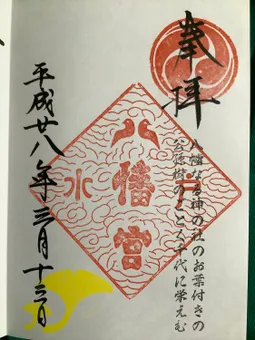 奉拝
八幡なる神の社のお葉付きの
公孫樹のごとく千代に栄えむ
水戸
八幡宮
平成廿八年三月十三日